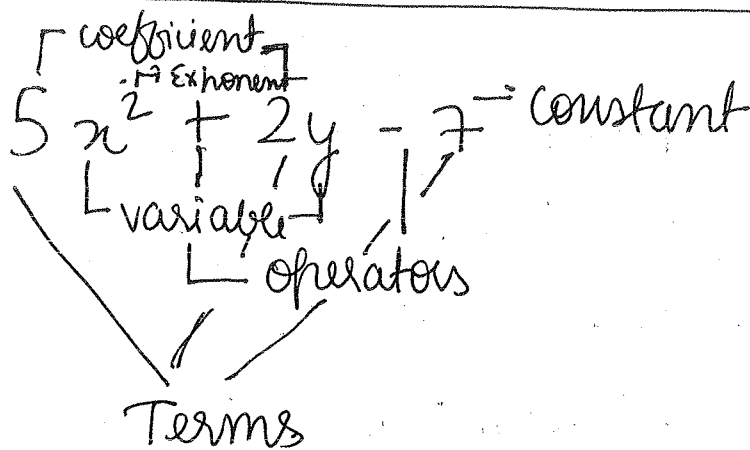 coefficient
Exponent
5x² + 2y - 7 constant
variable
operators
Terms